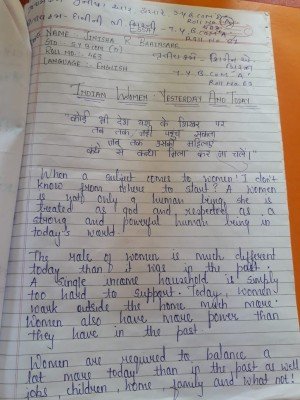 NAME - JIKISHA R BABARSARE
STD - S Y B COM (A)
ROLL NO. 463
LANGUAGE :- ENGLISH
INDIAN WOMEN YESTERDAY AND TODAY
"कोई भी देश यश के शिखर पर
तब तक नहीं पहुंच सकता
जब तक उसकी महिलाएं
कंधे से कन्धा मिला कर ना चलें।"
When a subject comes to women I don't
know from where to start? A women
is not only a human being she is
treated as god and respected as a
strong and powerful human being in
today's world
The role of women is much different
today than it was in the past.
A single income household is simply
too hard to support. Today, women
work outside the home much more.
Women also have more power than
they have in the past.
Women are required to balance a
lot more today than in the past as well
jobs, children, home, family and what not!